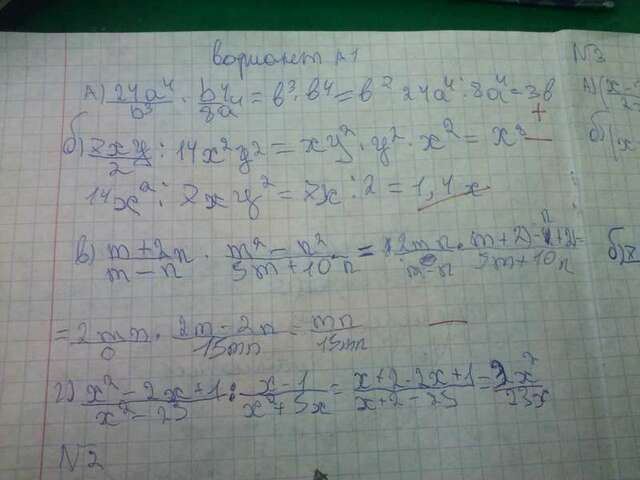 вариант А1
А) 24a⁴/b³ · b⁴/8a⁴ = b³ · b⁴ = b² 24a⁴ : 8a⁴ = 3b
+
б) 7xy/2 : 14x²y² = xy² · y² · x² = x³ —
14x² : 7xy² = 7x : 2 = 1,4x
в) m+2n/m-n · m²-n²/5m+10n =
= 2mn/0 · 2m-2n/15mn = mn/15mn
г) x²-2x+1/x²-25 : x-1/x²+5x = x+2-2x+1/x+2-25 =
N2
N3
А)
б)
б)